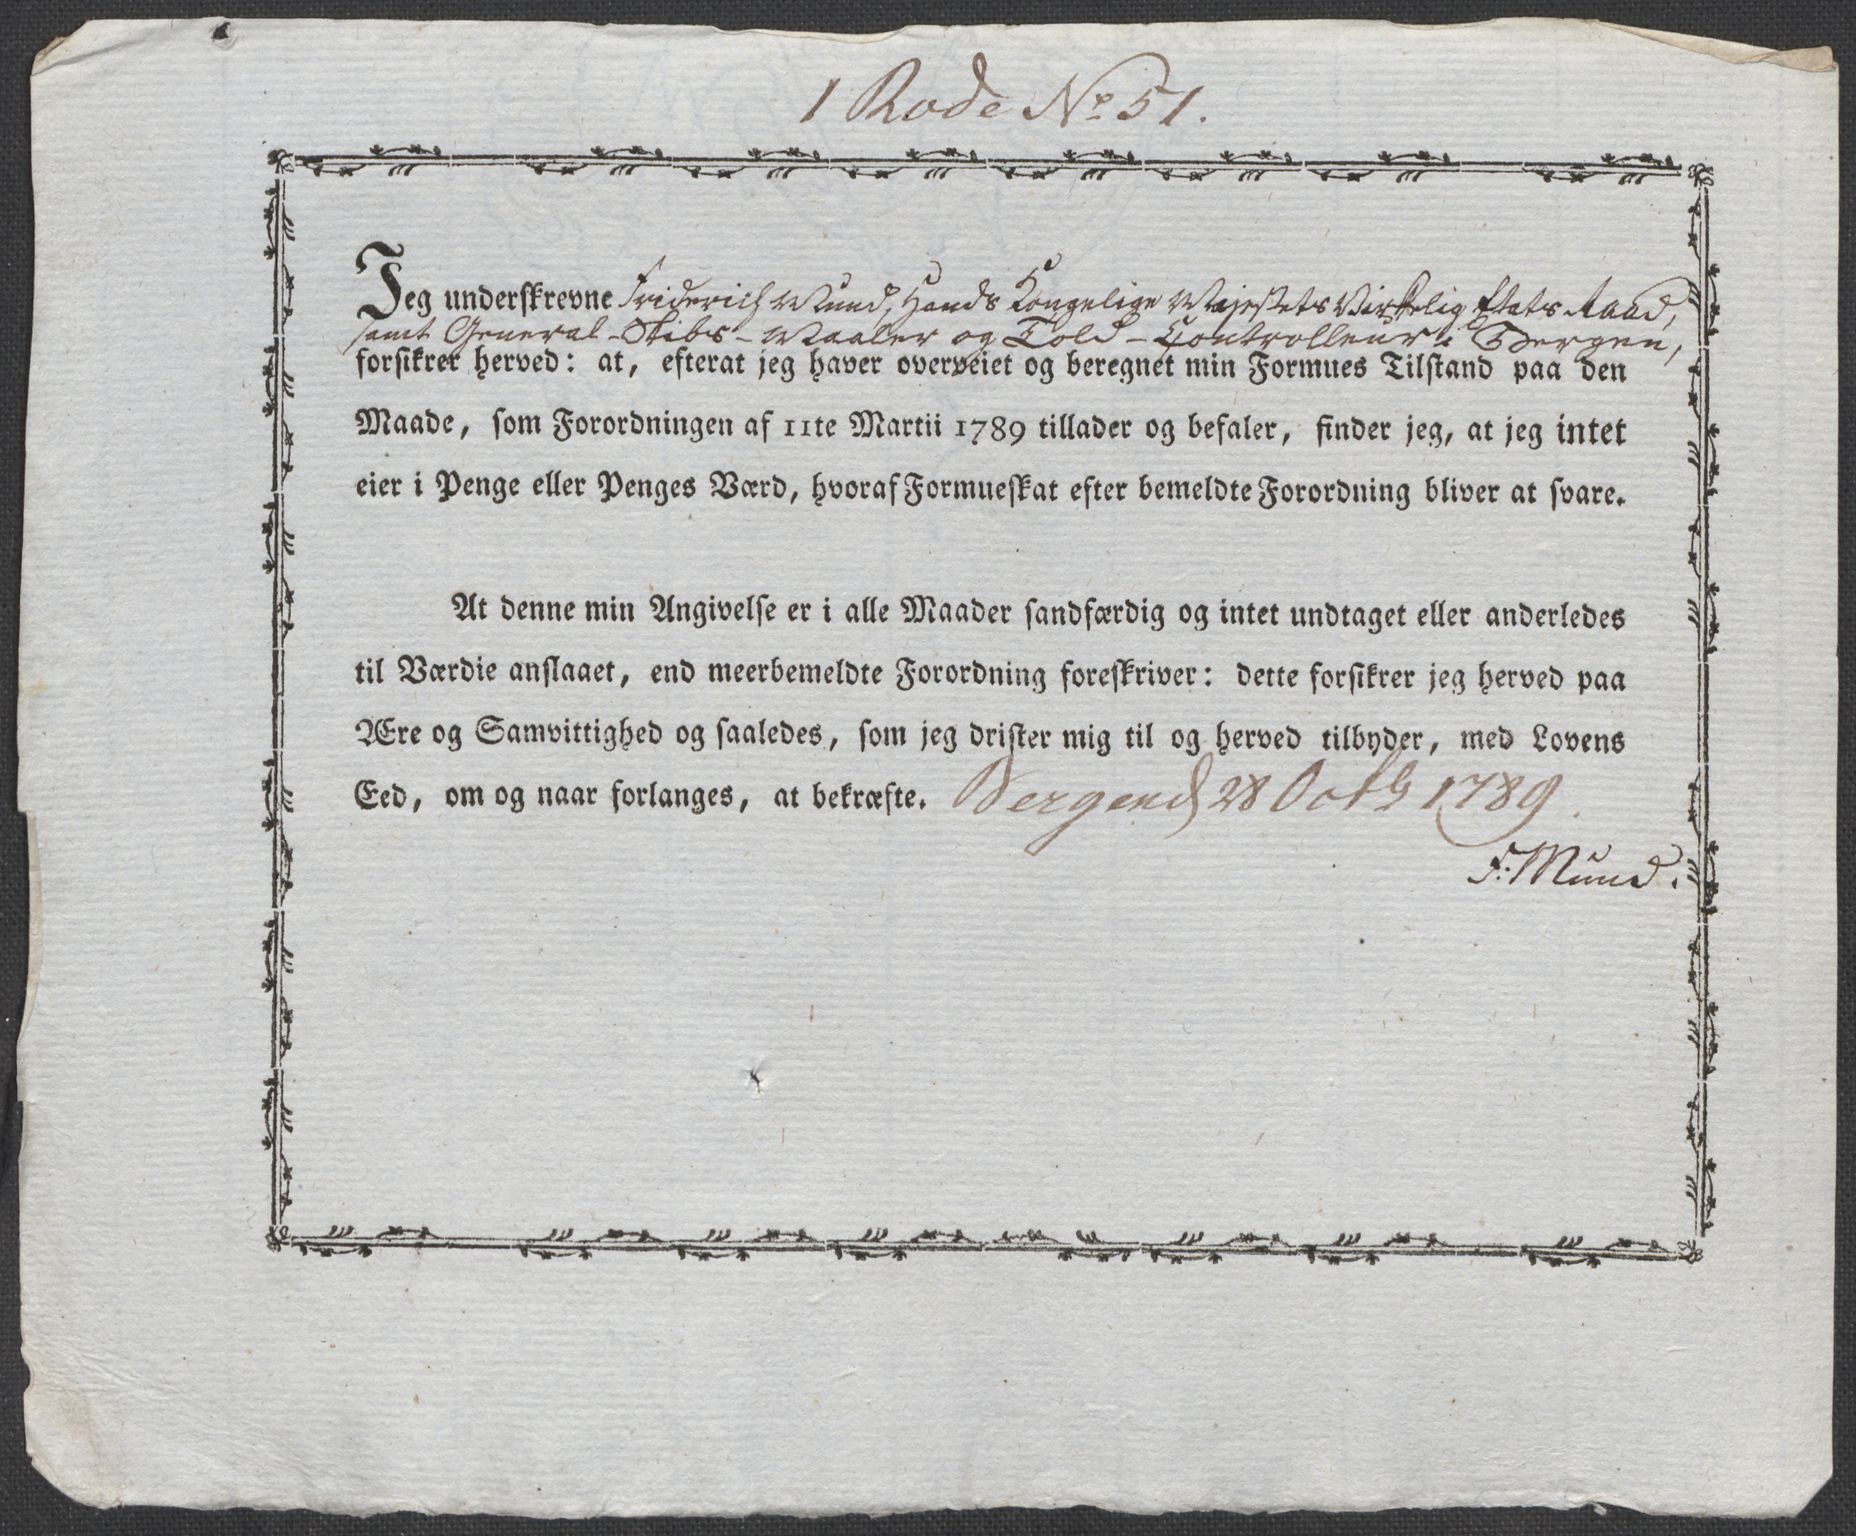 1 Rode No. 51.
Jeg underskrevne Friderich Mund, Hands Kongelige Majestets Virkelig Etats Raad,
samt General-Skibs-Maaler og Told-Controlleur i Bergen,
forsikrer herved: at, efterat jeg haver overveiet og beregnet min Formues Tilstand paa den
Maade, som Forordningen af 11te Martii 1789 tillader og befaler, finder jeg, at jeg intet
eier i Penge eller Penges Værd, hvoraf Formueskat efter bemeldte Forordning bliver at svare.
At denne min Angivelse er i alle Maader sandfærdig og intet undtaget eller anderledes
til Værdie anslaaet, end meerbemeldte Forordning foreskriver: dette forsikrer jeg herved paa
Ære og Samvittighed og saaledes, som jeg drister mig til og herved tilbyder, med Lovens
Eed, om og naar forlanges, at bekræfte. Bergen d 28 Octb 1789.
F: Mund.